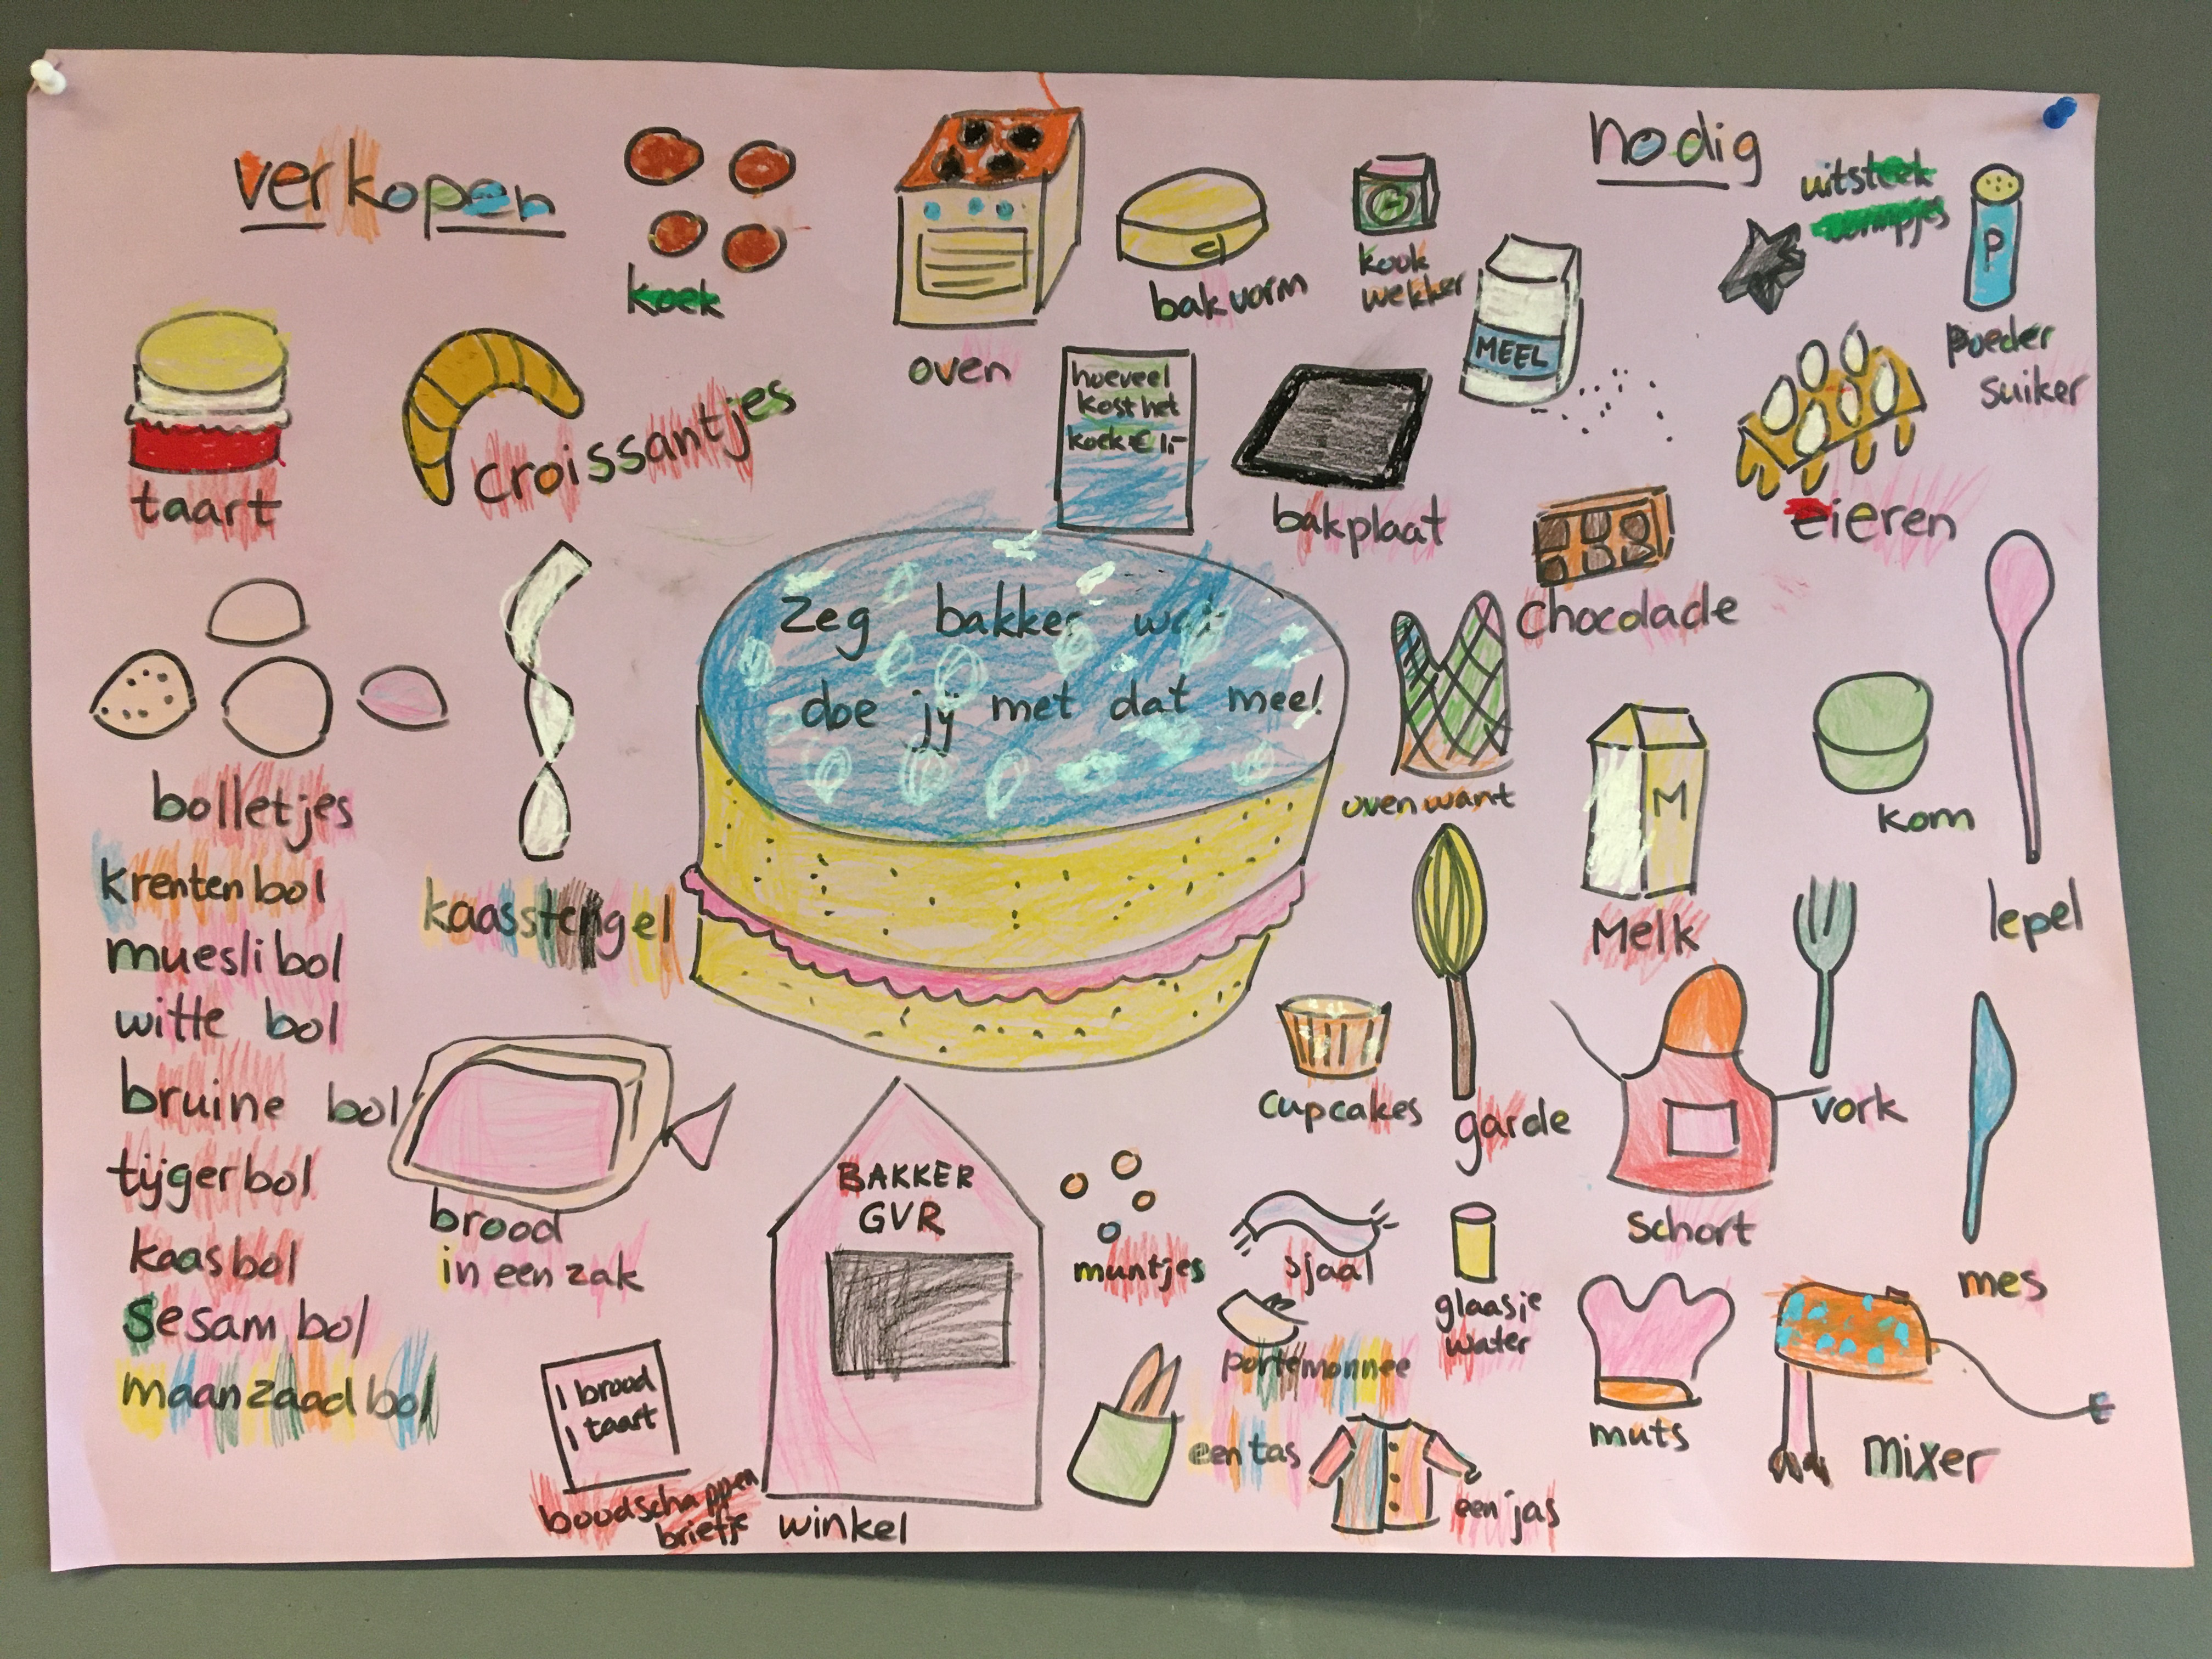 verkopen
koek
taart
croissantjes
bolletjes
krentenbol
mueslibol
witte bol
bruine bol
tijgerbol
kaasbol
sesam bol
maanzaadbol
kaasstengel
brood
in een zak
1 brood
1 taart
boodschappen
briefje
BAKKER
GVR
winkel
oven
hoeveel
kost het
koek € 1,-
Zeg bakker wat
doe jij met dat meel
nodig
bakvorm
kook
wekker
MEEL
uitsteek
vormpjes
P
poeder
suiker
bakplaat
eieren
chocolade
ovenwant
M
Melk
kom
lepel
cupcakes
garde
vork
schort
mes
muntjes
sjaal
glaasje
water
portemonnee
een tas
een jas
muts
mixer